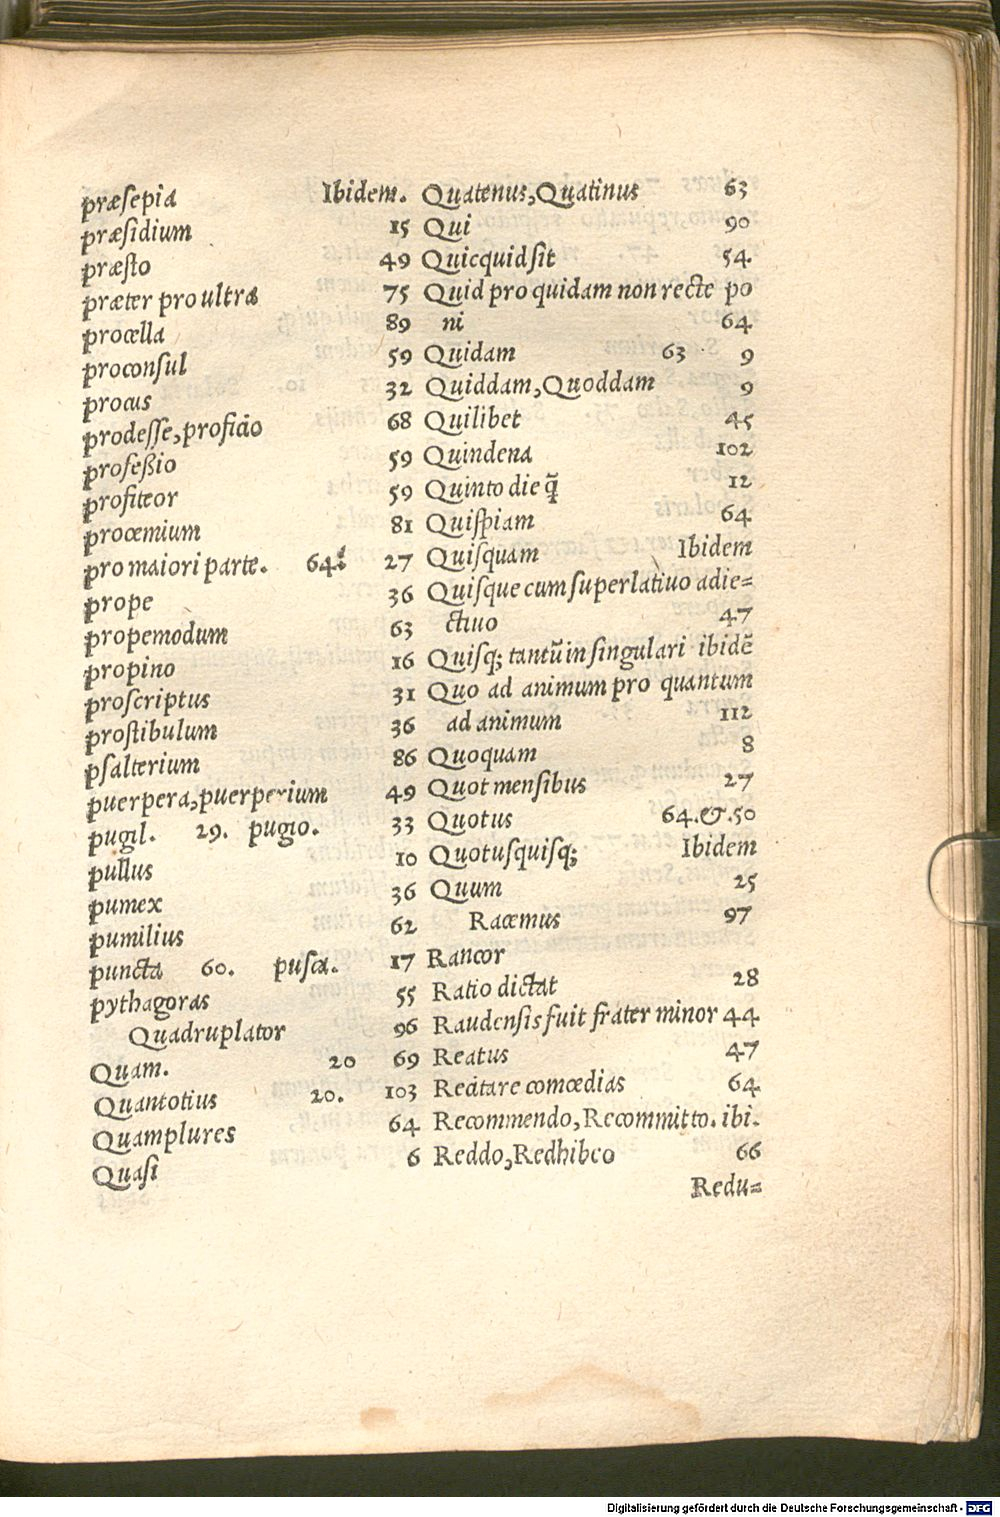 præsepia Ibidem.
præsidium 15
præsto 49
præter pro ultra 75
procella 89
proconsul 59
procus 32
prodesse, proficio 68
profeßio 59
profiteor 59
proœmium 81
pro maiori parte. 64. 27
prope 36
propemodum 63
propino 16
proscriptus 31
prostibulum 36
psalterium 86
puerpera, puerperium 49
pugil. 29. pugio. 33
pullus 10
pumex 36
pumilius 62
puncta 60. pusca. 17
pythagoras 55
Quadruplator 96
Quam. 20 69
Quantotius 20. 103
Quamplures 64
Quasi 6
Quatenus, Quatinus 63
Qui 90
Quicquid sit 54
Quid pro quidam non recte po
ni 64
Quidam 63 9
Quiddam, Quoddam 9
Quilibet 45
Quindena 102
Quinto die q̃ 12
Quispiam 64
Quisquam Ibidem
Quisque cum superlatiuo adie=
ctiuo 47
Quisq; tantũ in singulari ibidẽ
Quo ad animum pro quantum
ad animum 112
Quoquam 8
Quot mensibus 27
Quotus 64.&.50
Quotusquisq; Ibidem
Quum 25
Racemus 97
Rancor
Ratio dictat 28
Raudensis fuit frater minor 44
Reatus 47
Recitare comœdias 64
Recommendo, Recommitto. ibi.
Reddo, Redhibeo 66
Redu=
Digitalisierung gefördert durch die Deutsche Forschungsgemeinschaft - DFG